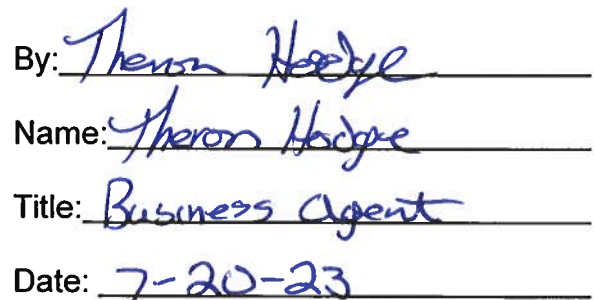 By: Theron Hodge
Name: Theron Hodge
Title: Business Agent
Date: 7-20-23